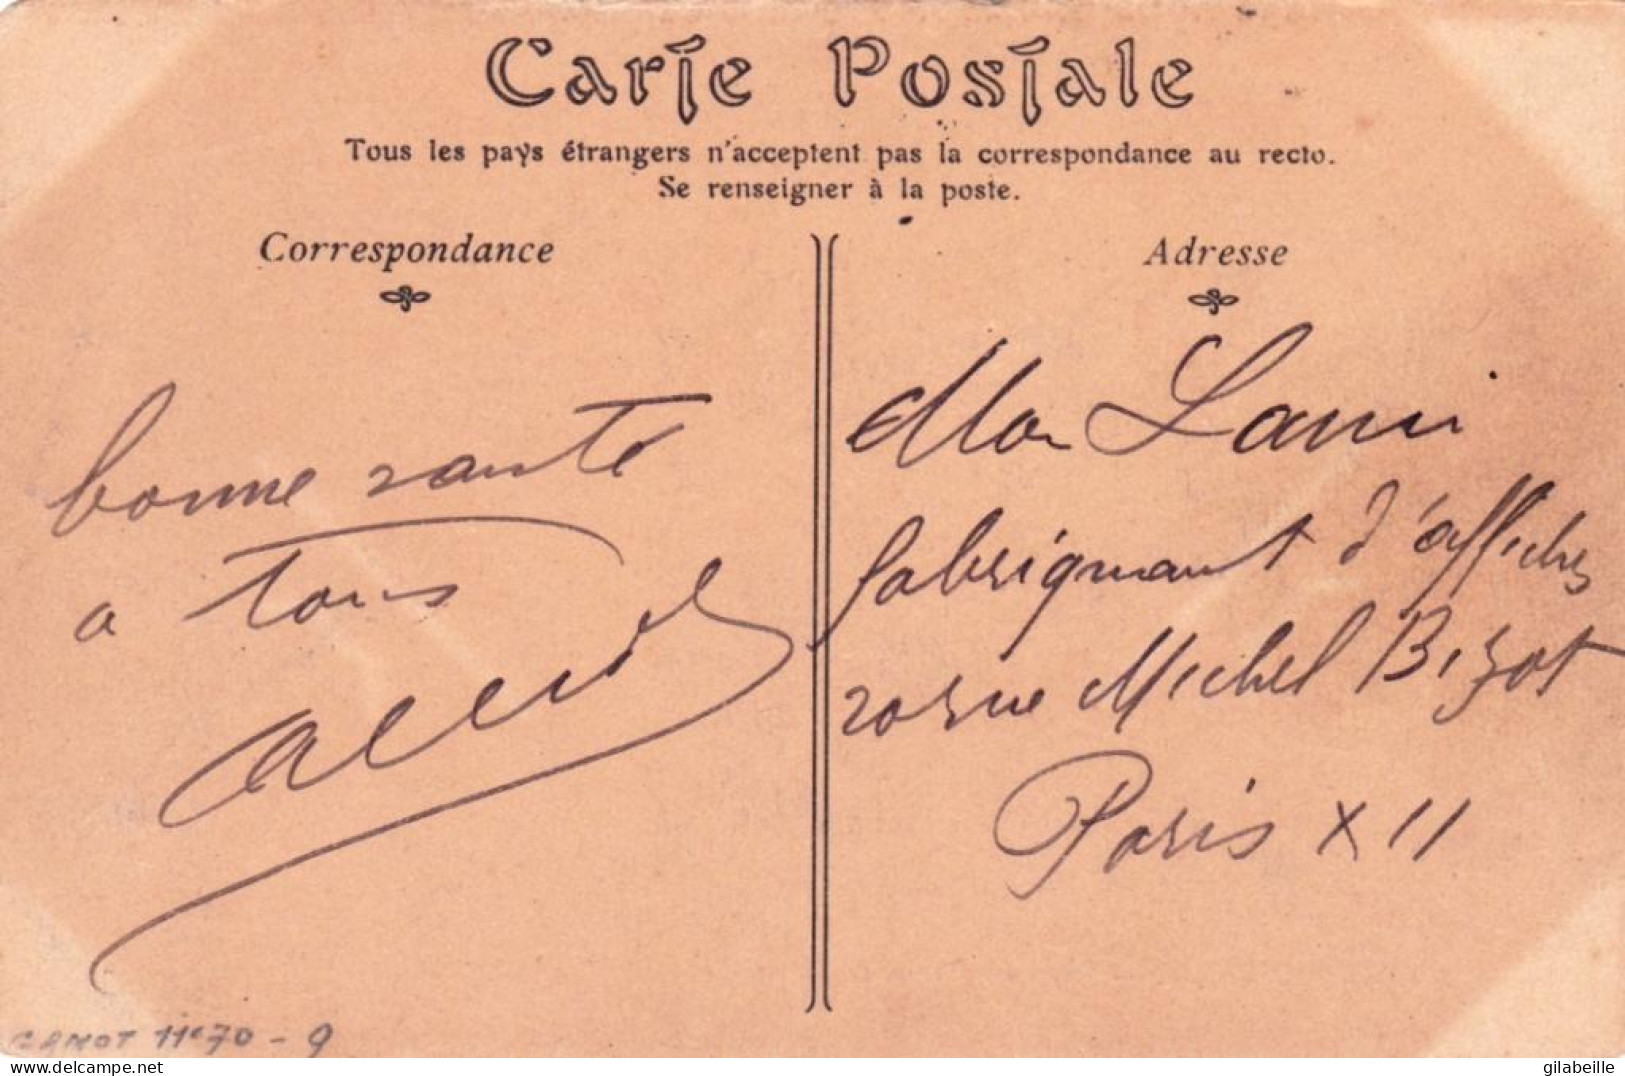 Carte Postale
Tous les pays étrangers n'acceptent pas la correspondance au recto.
Se renseigner à la poste.
Correspondance
Adresse
bonne sante
a tous
Mon Lami
fabrignant d'affiches
rue Michel Bizot
Paris XII
11e70 - 9
delcampe.net
gilabeille